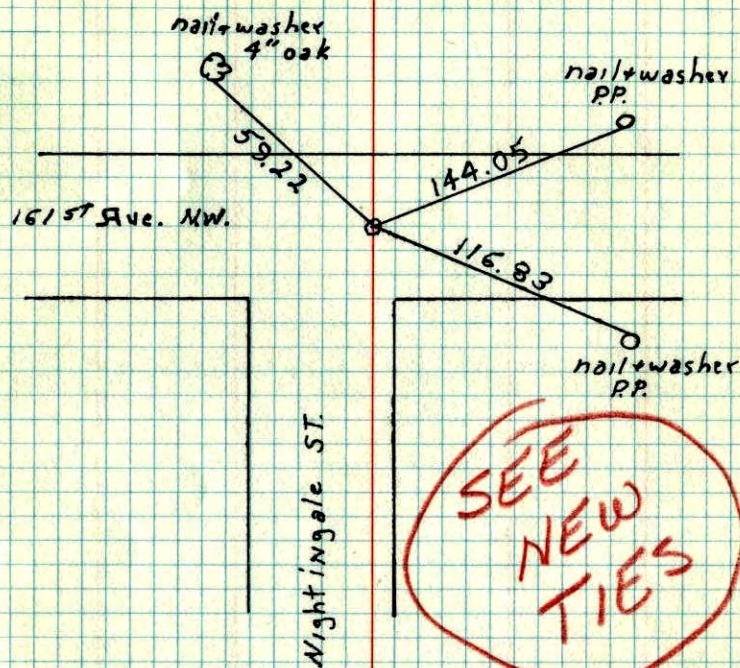 nail+washer
4" oak
nail+washer
P.P.
59.22
144.05
161 ST Ave. N.W.
116.83
nail+washer
P.P.
Nightingale ST.
SEE
NEW
TIES